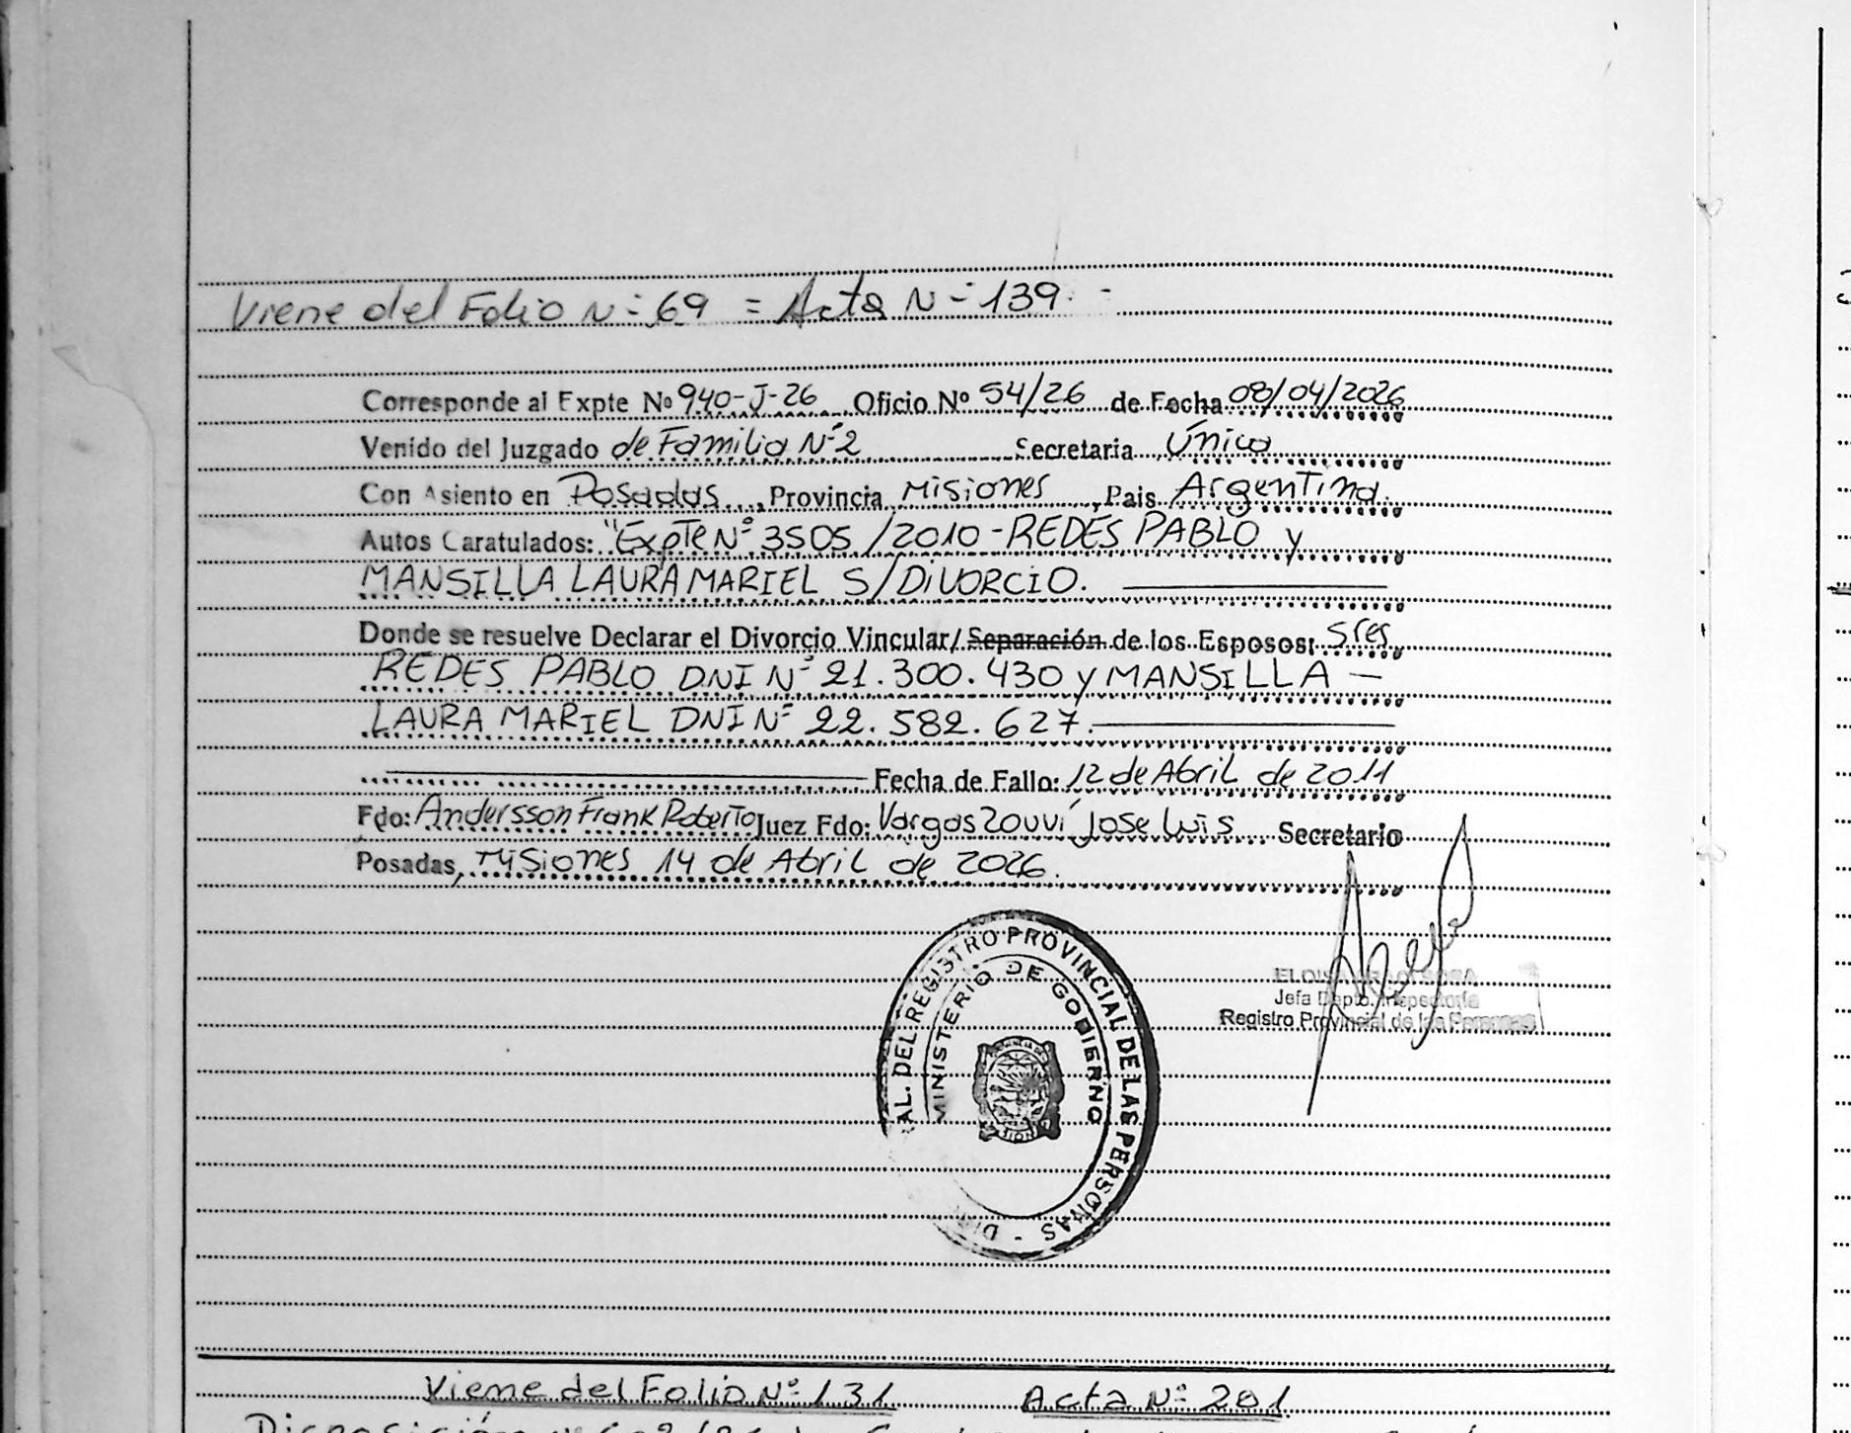 Viene del Folio N= 69 = Acta N= 139. -
Corresponde al Expte Nº 940-J-26 Oficio Nº 54/26 de Fecha 08/04/2026
Venido del Juzgado de Familia Nº2 Secretaria Única
Con Asiento en Posadas, Provincia Misiones, Pais Argentina.
Autos Caratulados: "Expte Nº 3505/2010-REDES PABLO y
MANSILLA LAURA MARIEL S/DIVORCIO.
Donde se resuelve Declarar el Divorcio Vincular/ Separación de los Esposos: Sres
REDES PABLO DNI Nº 21.300.430 y MANSILLA —
LAURA MARIEL DNI Nº 22.582.627.
Fecha de Fallo: 12 de Abril de 2011
Fdo: Andersson Frank Roberto Juez Fdo: Vargas Zouví Jose Luis Secretario
Posadas, Misiones 14 de Abril de 2026.
AL. DEL REGISTRO PROVINCIAL DE LAS PERSONAS -
MINISTERIO DE GOBIERNO
Jefa Dpto. Inspectoría
Registro Provincial de las Personas
Viene del Folio Nº 131 Acta Nº 201
Disposición